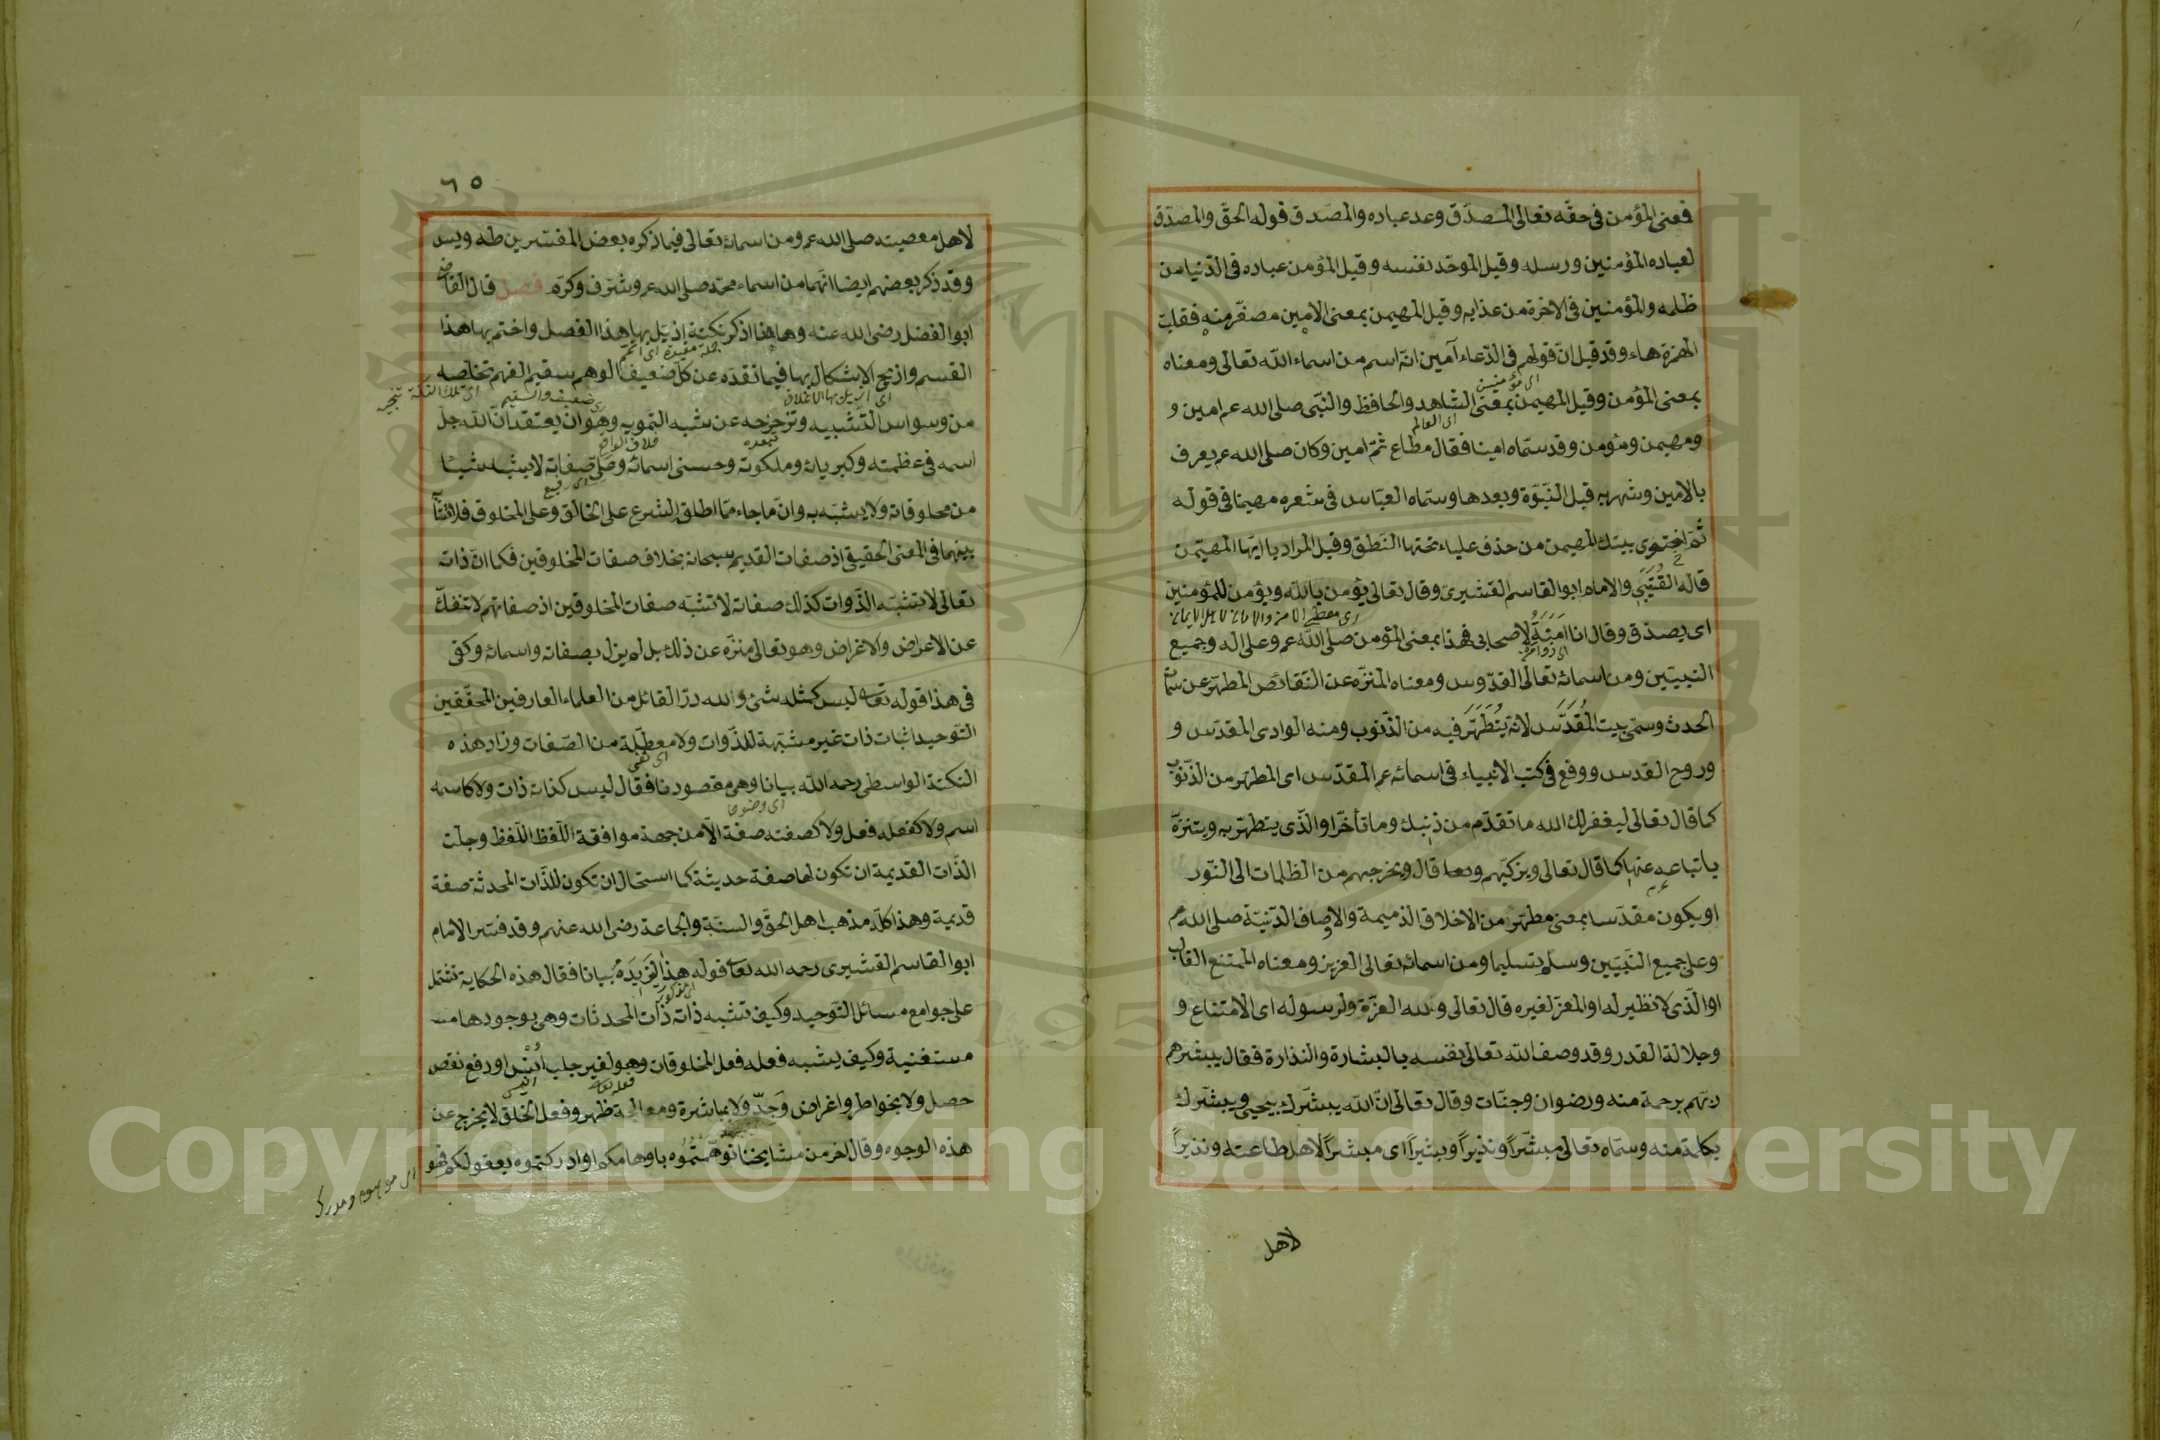 فمعنى المؤمن فى حقّه تعالى المصدّق وعد عباده والمصدق قوله الحقّ والمصدّق
لعباده المؤمنين ورسله وقيل الموحّد نفسه وقيل المؤمن عباده فى الدّنيا من
ظلمه والمؤمنين فى الاخرة من عذابه وقيل المهيمن بمعنى الامين مصغّر منه فقلبت
الهمزة هاء وقد قيل انّ قولهم فى الدّعاء آمين انّه اسم من اسماء الله تعالى ومعناه
بمعنى المؤمن وقيل المهيمن بمعنى الشاهد والحافظ والنّبى صلى الله عم امين و
ومهيمن ومؤمن وقد سمّاه امينا فقال مطاع ثمّ امين وكان صلى الله عم يعرف
بالامين وشهر به قبل النّبوّة وبعدها وسماه العبّاس فى شعره مهيمنا فى قوله
ثمّ احتوى بيتك المهيمن من خذف علياء تحتها النّطق وقيل المراد يا ايّها المهيمن
قاله القُتَيبى والامام ابو القاسم القشيرى وقال تعالى يؤمن بالله ويؤمن للمؤمنين
اى يصدّق وقال انا اَمَنَةٌ لاصحابى فهذا بمعنى المؤمن صلى الله عم وعلى اله وجميع
النبيّين ومن اسمائه تعالى القدّوس ومعناه المنزّه عن النّقائص المطهّر عن سمات
الحدث وسمّى بيت المُقَدّس لانه يُتَطَهَّر فيه من الذّنوب ومنه الوادى المقدّس و
وروح القدس ووقع فى كتب الانبياء فى اسمائه عم المقدّس اى المطهّر من الذّنوب
كما قال تعالى ليغفر لك الله ما تقدّم من ذنبك وما تأخّر او الّذى يتطهّر به ويتنزّه
باتباعه عنها كما قال تعالى ويزكيهم وتعا قال ويخرجهم من الظلمات الى النّور
او يكون مقدّسا بمعنى مطهّر من الاخلاق الذميمة والاوصاف الدّنيّة صلى الله عم
وعلى جميع النّبيّين وسلم تسليما ومن اسمائه تعالى العزيز ومعناه الممتنع الغالب
او الّذى لا نظير له او المعزّ لغيره قال تعالى ولله العزّة ولرسوله اى الامتناع و
وجلالة القدر وقد وصف الله تعالى نفسه بالبشارة والنذارة فقال يبشّرهم
ربّهم برحمة منه ورضوان وجنّات وقال تعالى انّ الله يبشّرك بيحيى ويبشّرك
بكلمة منه وسمّاه تعالى مبشّراً ونذيراً وبشيراً اى مبشراً لاهل طاعته ونذيراً
لاهل
٦٥
لاهل معصيته صلى الله عم ومن اسمائه تعالى فيما ذكره بعض المفسّرين طه ويس
وقد ذكر بعضهم ايضا انّهما من اسماء محمّد صلى الله عم وشرّف وكرّم فصل قال القاضى
ابو الفضل رضى الله عنه وها هنا اذكر نكتة اذيّل بها هذا الفصل واختم بها هذا
القسم وازيح الاشكال بها فيما تقدّم عن كلّ ضعيف الوهم سقيم الفهم تخلّصه
من وسواس التّشبيه وتزحزحه عن شبه التّمويه وهو ان يعتقد انّ الله جلّ
اسمه فى عظمته وكبريائه وملكوته وحسنى اسمائه وعلى صفاته لا يشبه شيئا
من مخلوقاته ولا يشبّه به وانّ ما جاء ممّا اطلقه الشرع على الخالق وعلى المخلوق فلا تشابه
بينهما فى المعنى الحقيقى اذ صفات القديم سبحانه بخلاف صفات المخلوقين فكما انّ ذاته
تعالى لا تشبه الذّوات كذلك صفاته لا تشبه صفات المخلوقين اذ صفاتهم لا تنفكّ
عن الاعراض والاغراض وهو تعالى منزّه عن ذلك بل لم يزل بصفاته واسمائه وكفى
فى هذا قوله تعالى ليس كمثله شئ ولله درّ القائل من العلماء العارفين المحقّقين
التّوحيد اثبات ذات غير مشبّهة للذّوات ولا معطّلة من الصّفات وزاد هذه
النكتة الواسطى رحمه الله بيانا وهى مقصودنا فقال ليس كذاته ذات ولا كاسمه
اسم ولا كفعله فعل ولا كصفته صفة الّا من جهة موافقة اللّفظ اللّفظ وجلّت
الذّات القديمة ان تكون لها صفة حديثة كما استحال ان تكون للذّات المحدثة صفة
قديمة وهذا كلّه مذهب اهل الحقّ والسنّة والجماعة رضى الله عنهم وقد فسّر الامام
ابو القاسم القشيرى رحمه الله تعالى قوله هذا ليزيده بيانا فقال هذه الحكاية تشتمل
على جوامع مسائل التّوحيد وكيف تشبه ذاته ذات المحدثات وهى بوجودها مســ
مستغنية وكيف يشبه فعله فعل المخلوقات وهو لغير جلب اُنْس او رفع نقص
حصل ولا بخواطر واغراض وجدّ ولا بمباشرة ومعالجة ظهر وفعل الخلق لا يخرج عن
هذه الوجوه وقال اخر من مشايخنا ما توهّمتموه باوهامكم او ادركتموه بعقولكم فهو